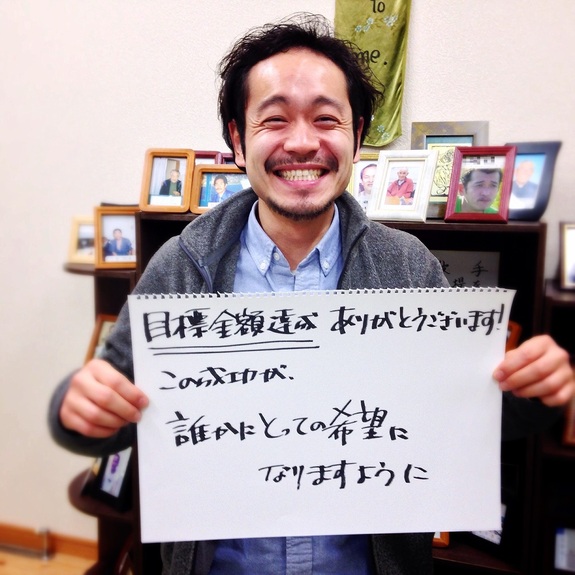 to
me.
目標金額達成 ありがとうございます!
この成功が、
誰かにとっての希望に
なりますように